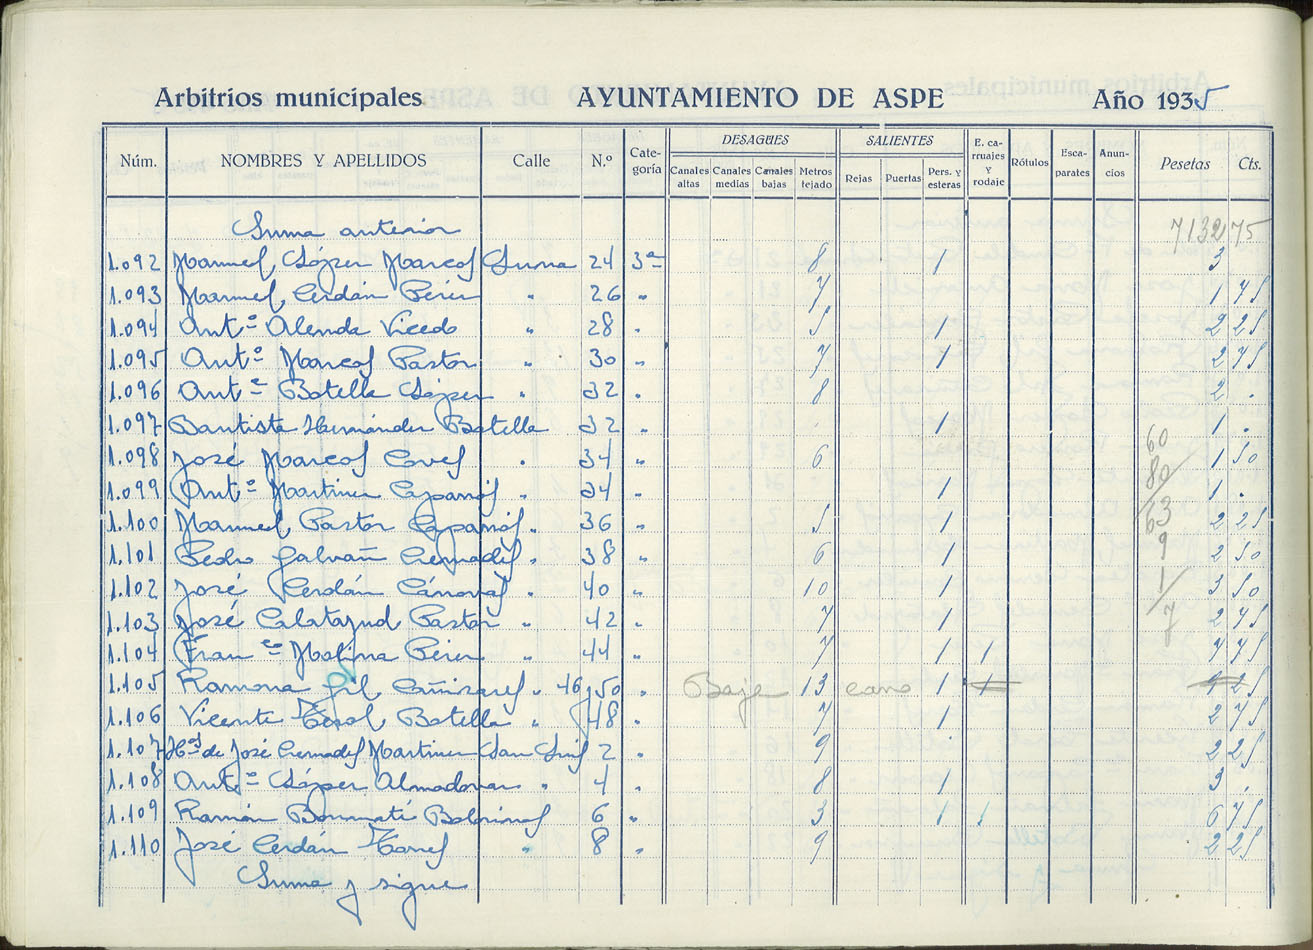 Arbitrios municipales AYUNTAMIENTO DE ASPE Año 1935
Núm. NOMBRES Y APELLIDOS Calle N.º Cate-goría DESAGÜES SALIENTES E. ca-rruajes y rodaje Rótulos Esca-parates Anun-cios Pesetas Cts.
Canales altas Canales medias Canales bajas Metros tejado Rejas Puertas Pers. y esteras
Suma anterior 7132 75
1.092 Manuel López Marcos Luna 24 3ª 8 1 3 .
1.093 Manuel Cerdán Pérez " 26 " 7 1 75
1.094 Antº Alenda Vicedo " 28 " 5 1 2 25
1.095 Antº Marcos Pastor " 30 " 7 1 2 75
1.096 Antª Botella López " 32 " 8 2 .
1.097 Bautista Hernández Botella " 32 " 1 1 .
1.098 José Marcos Coves " 34 " 6 1 50
1.099 Antº Martínez Caparrós " 34 " 1 1 .
1.100 Manuel Pastor Caparrós " 36 " 5 1 2 25
1.101 Pedro Galvañ Cremades " 38 " 6 1 2 50
1.102 José Cerdán Cánovas " 40 " 10 1 3 50
1.103 José Calatayud Pastor " 42 " 7 1 2 75
1.104 Franco Molina Pérez " 44 " 7 1 1 7 75
1.105 Ramona Gil Cañizares " 46 y 50 " Baja 13 cano 1 1 9 25
1.106 Vicente Terol Botella " 48 " 7 1 2 75
1.107 Hos de José Cremades Martínez San Luis 2 " 9 2 25
1.108 Antº López Almodovar " 4 " 8 1 3 .
1.109 Ramón Bonmatí Belorinos " 6 " 3 1 1 6 75
1.110 José Cerdán Torres " 8 " 9 2 25
Suma y sigue
60
80
63
9
1
7